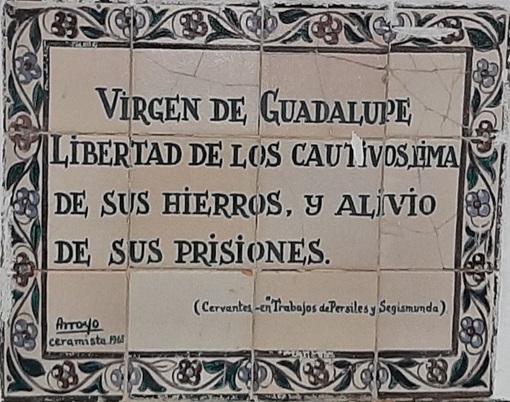 VIRGEN DE GUADALUPE
LIBERTAD DE LOS CAUTIVOS, LIMA
DE SUS HIERROS, Y ALIVIO
DE SUS PRISIONES.
(Cervantes -en Trabajos de Persiles y Segismunda)
Arroyo
ceramista 1965